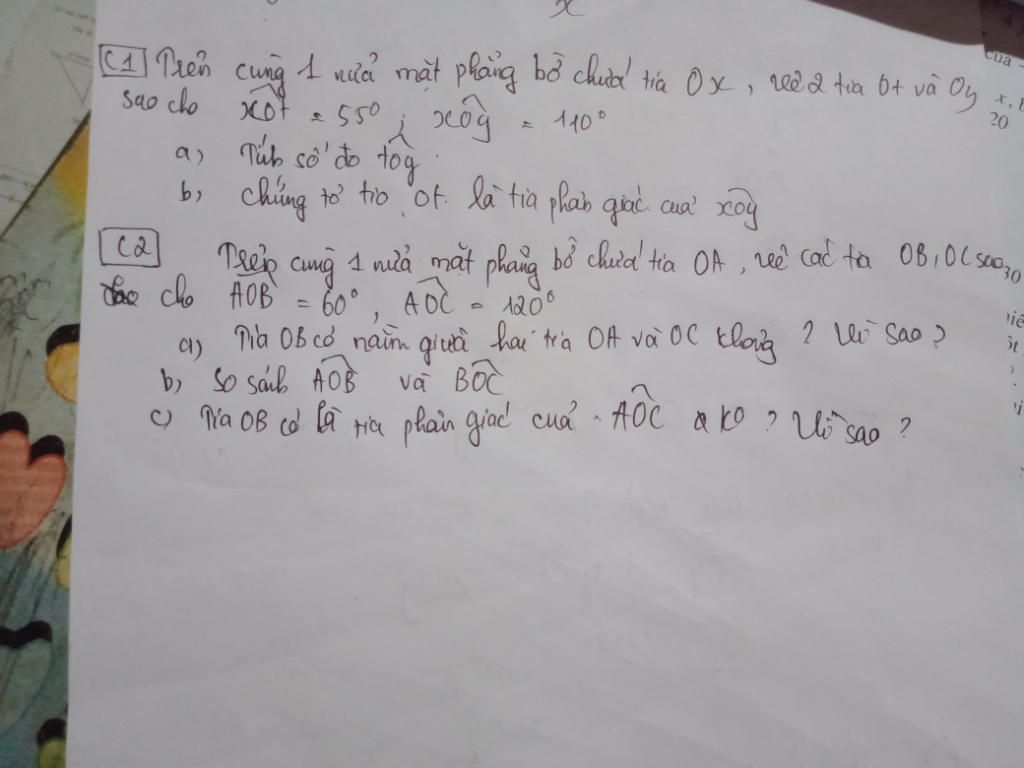 x
C1 Trên cùng 1 nửa mặt phẳng bờ chứa tia Ox, vẽ 2 tia Ot và Oy
sao cho xOt = 55°; xOy = 110°
a, Tính số đo tOy.
b, chứng tỏ tia Ot là tia phân giác của xOy
C2 Trên cùng 1 nửa mặt phẳng bờ chứa tia OA, vẽ các tia OB, OC sao
cho AOB = 60°, AOC = 120°
a) Tia OB có nằm giữa hai tia OA và OC không? Vì sao?
b, so sánh AOB và BOC
c) Tia OB có là tia phân giác của AOC KO? Vì sao?
của
x,
20
30